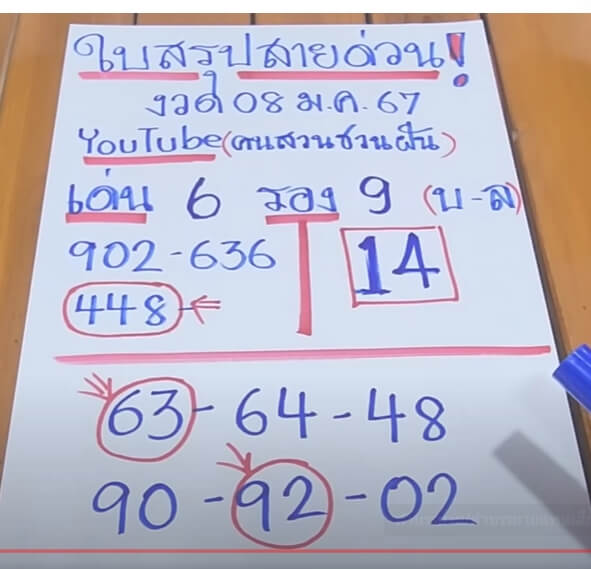 ใบสรุปสายด่วน!
งวด 08 ม.ค. 67
YouTube (คนสวนชวนฝัน)
เด่น 6 รอง 9 (บ-ล)
902-636
14
448
63-64-48
90-92-02